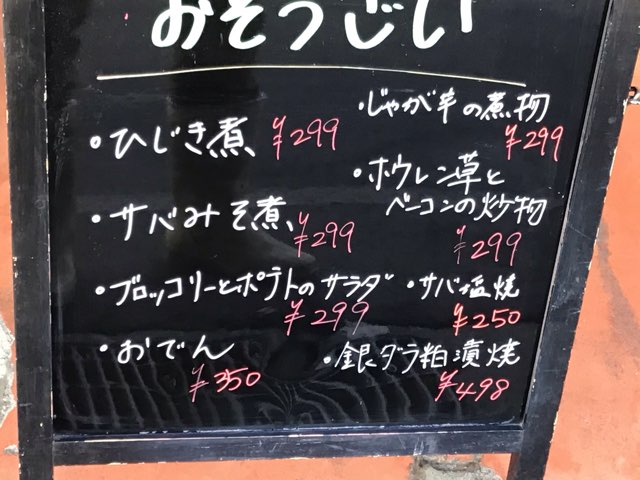 おそうざい
・ひじき煮 ¥299
・サバみそ煮 ¥299
・ブロッコリーとポテトのサラダ
¥299
・おでん
¥350
・じゃが芋の煮物
¥299
・ホウレン草と
ベーコンの炒物
¥299
・サバ塩焼
¥250
・銀ダラ粕漬焼
¥498